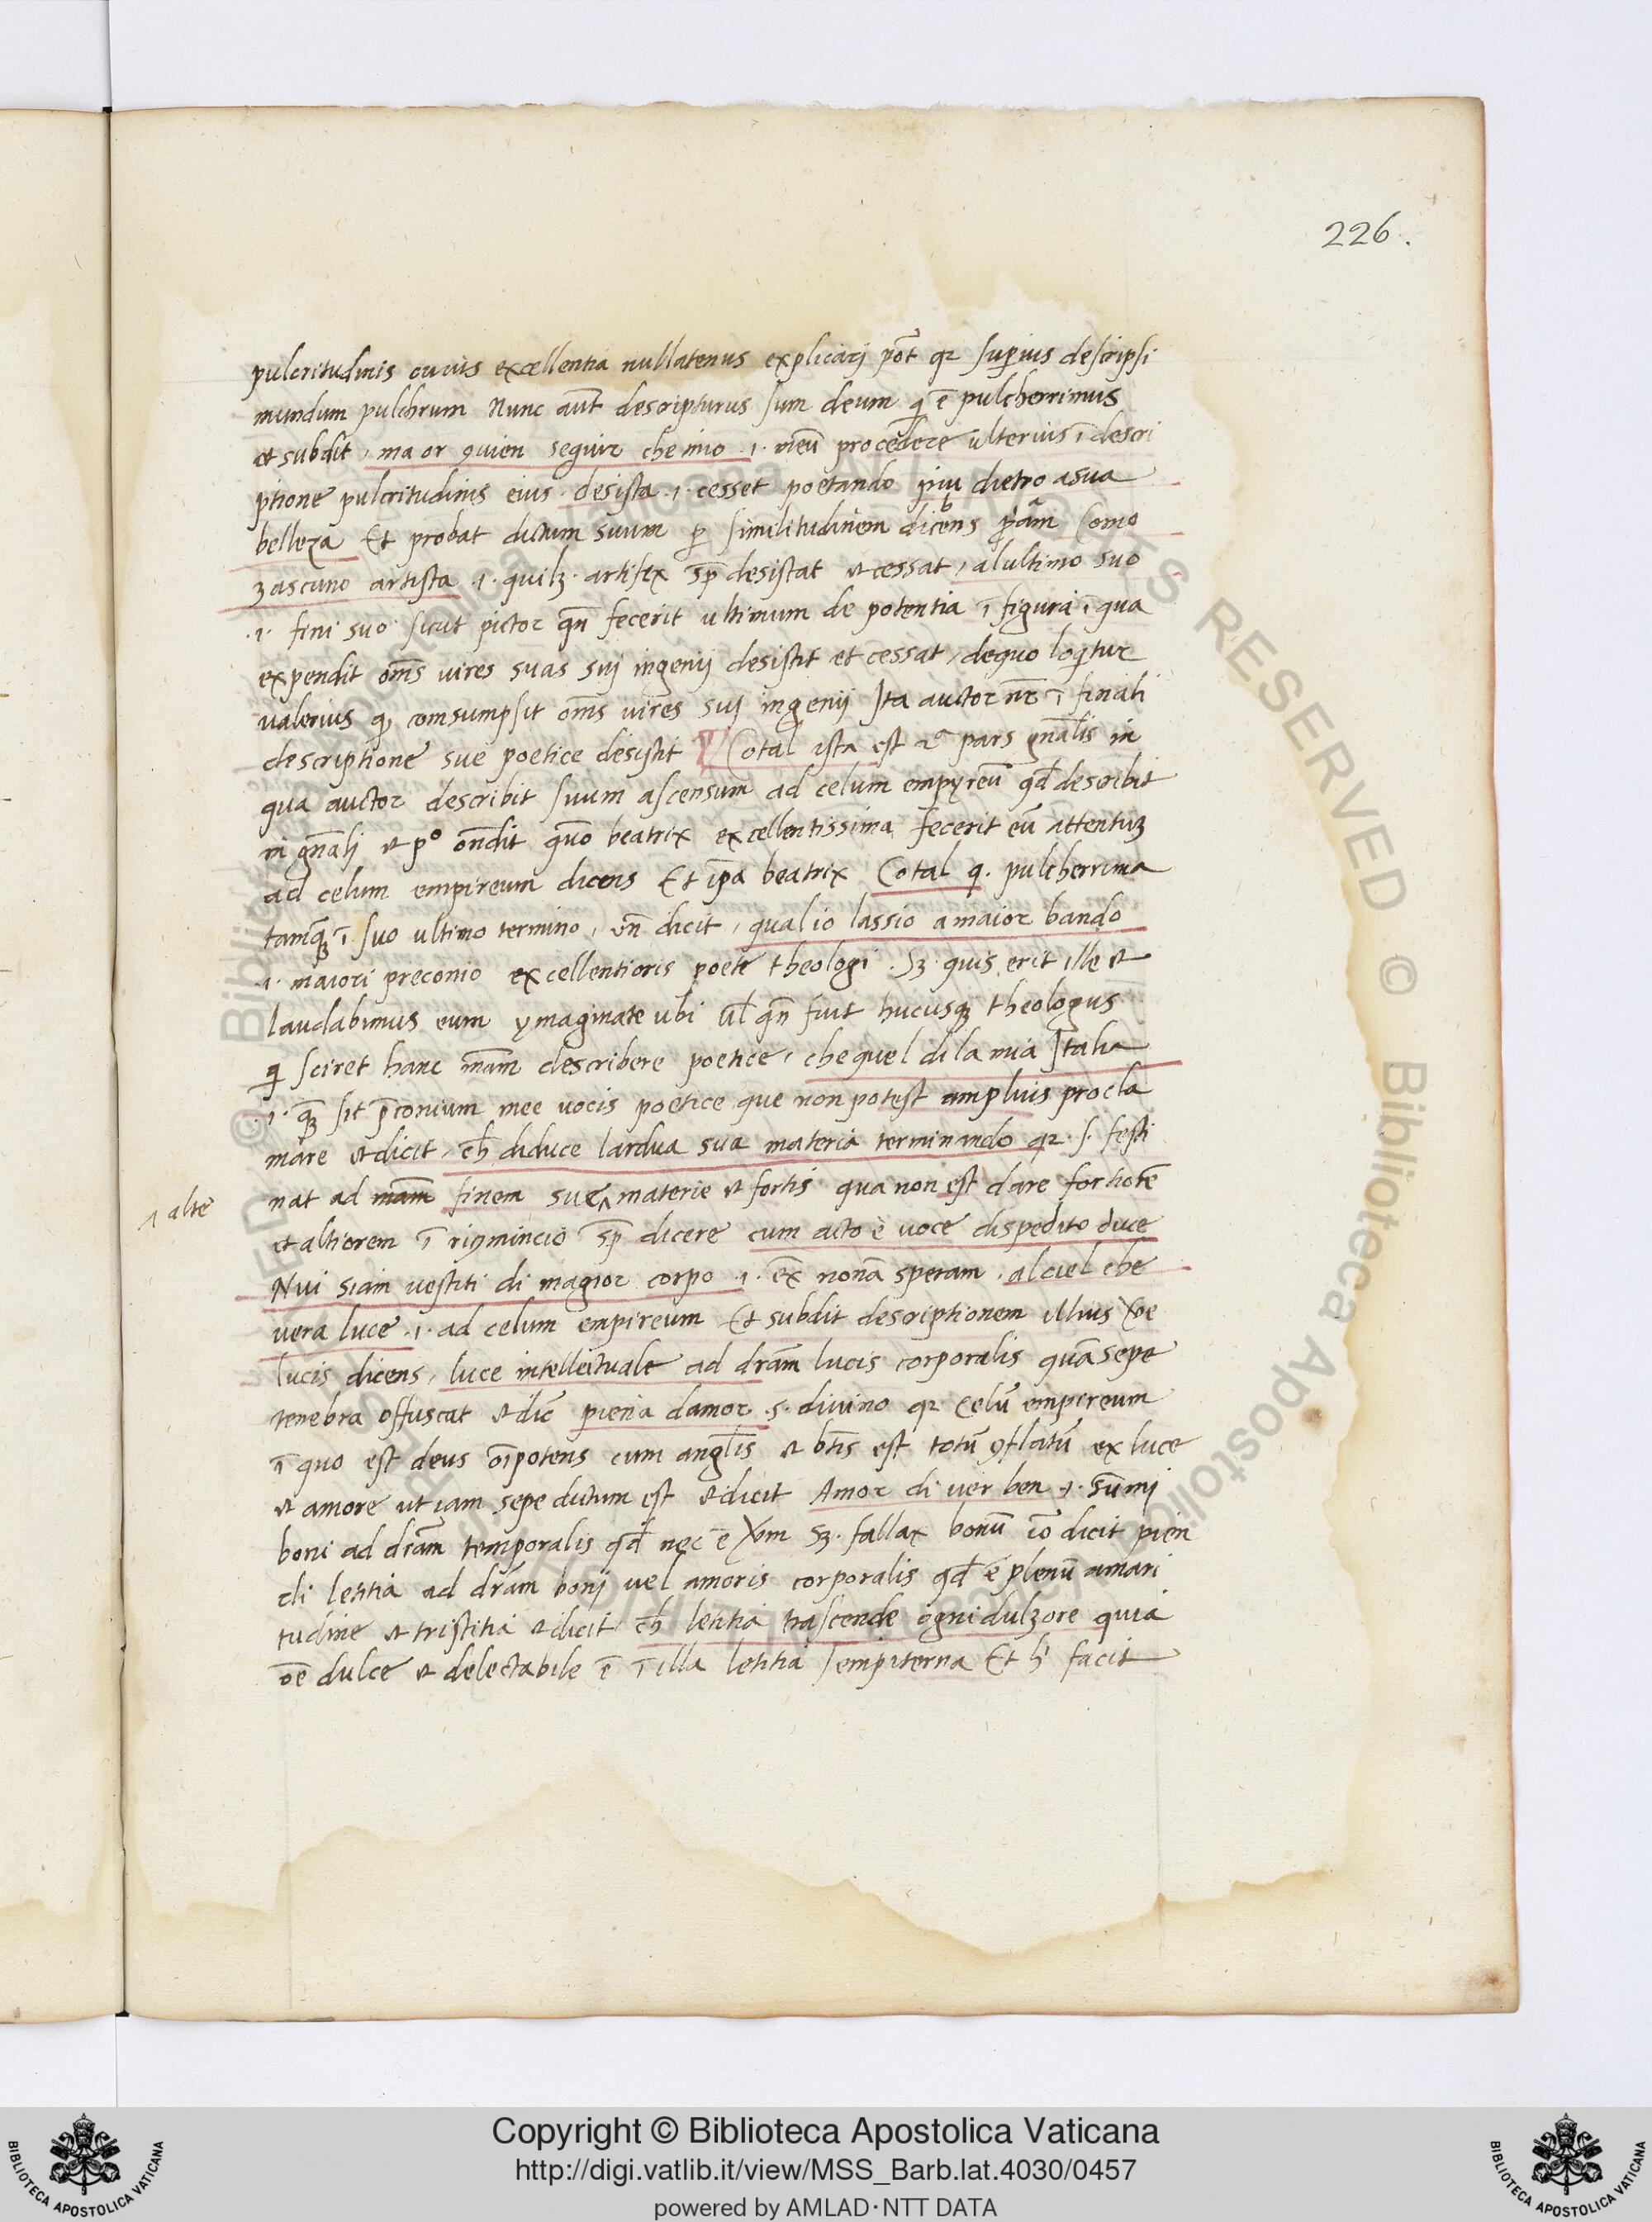 226.
pulcritudinis cuius excellentia nullatenus explicarj põt qr superius descripsi
mundum pulchrum Nunc aut̃ descripturus sum deum qͥ ẽ pulcherrimus
et subdit, ma or ꝯvien seguir che mio .i. meũ procedere ulterius ĩ descri
ptione pulcritudinis eius. desista .i. cesset poetando piu dietro a sua
belleza Et probat dictum suum ꝑ similitudinem dicens Como
zascuno artista .i. quilꝫ artifex sp̃ desistat et cessat, al ultimo suo
.i. fini suo sicut pictor qñ fecerit ultimum de potentia ĩ figura ĩ qua
expendit om̃s uires suas suj ingenij desistit et cessat, de quo loqͥtur
valerius qͩ comsumpsit om̃s uires suj ingenij Ita auctor nr̃ ĩ finali
descriptione sue poetice desistit ¶ Cotal ista est 2ᵃ pars gñalis in
qua auctor describit suum ascensum ad celum empyreũ qd̃ describit
in gñalj et pº oñdit quõ beatrix excellentissima fecerit eũ attentuꝫ
ad celum empireum dicens Et ip̃a beatrix Cotal q. pulcherrima
tamqꝫ ĩ suo ultimo termino, vñ dicit, qual io lassio a maior bando
.i. maiori preconio excellentioris poete theologi. Sꝫ quis erit ille et
laudabimus eum ymaginate ubi ul̃ qñ fuit hucusqꝫ theologus
qͥ sciret hanc mãm describere poetice, che quel di la mia Italia
.i. qꝫ sit p̃conium mee uocis poetice que non potest amplius procla
mare et dicit, ch̃ diduce lardua sua materia terminando qr .s. festi
nat ad mãm finem sue ‸ materie et fortis qua non est dare fortiorẽ
‸ alte
et altiorem ĩ riymincio sp̃ dicere cum acto e uoce dispedito duce
Nui siam uestiti di magior corpo .i. ex̃ nonã speram. al ciel che
vera luce .i. ad celum empireum Et subdit descriptionem illius
lucis dicens, luce intellectuale ad drãm lucis corporalis quã sepe
tenebra offuscat et dic̃ piena damor .s. diuino qr celũ empireum
ĩ quo est deus oĩpotens cum angl̃is et bt̃is est totũ ꝯflatũ ex luce
et amore ut iam sepe dictum est et dicit Amor di uer ben .i. sum̃j
boni ad drãm temporalis qd̃ nec ẽ Sꝫ fallax bonũ iõ dicit pien
di letitia ad drãm bonj uel amoris corporalis qd̃ ẽ plenũ amari
tudine et tristitia et dicit ch̃ letitia trascende ogni dulzore quia
oẽ dulce et delectabile ẽ ĩ illa letitia sempiterna Et h̃ facit
Copyright © Biblioteca Apostolica Vaticana
http://digi.vatlib.it/view/MSS_Barb.lat.4030/0457
powered by AMLAD·NTT DATA
BIBLIOTECA APOSTOLICA VATICANA
BIBLIOTECA APOSTOLICA VATICANA